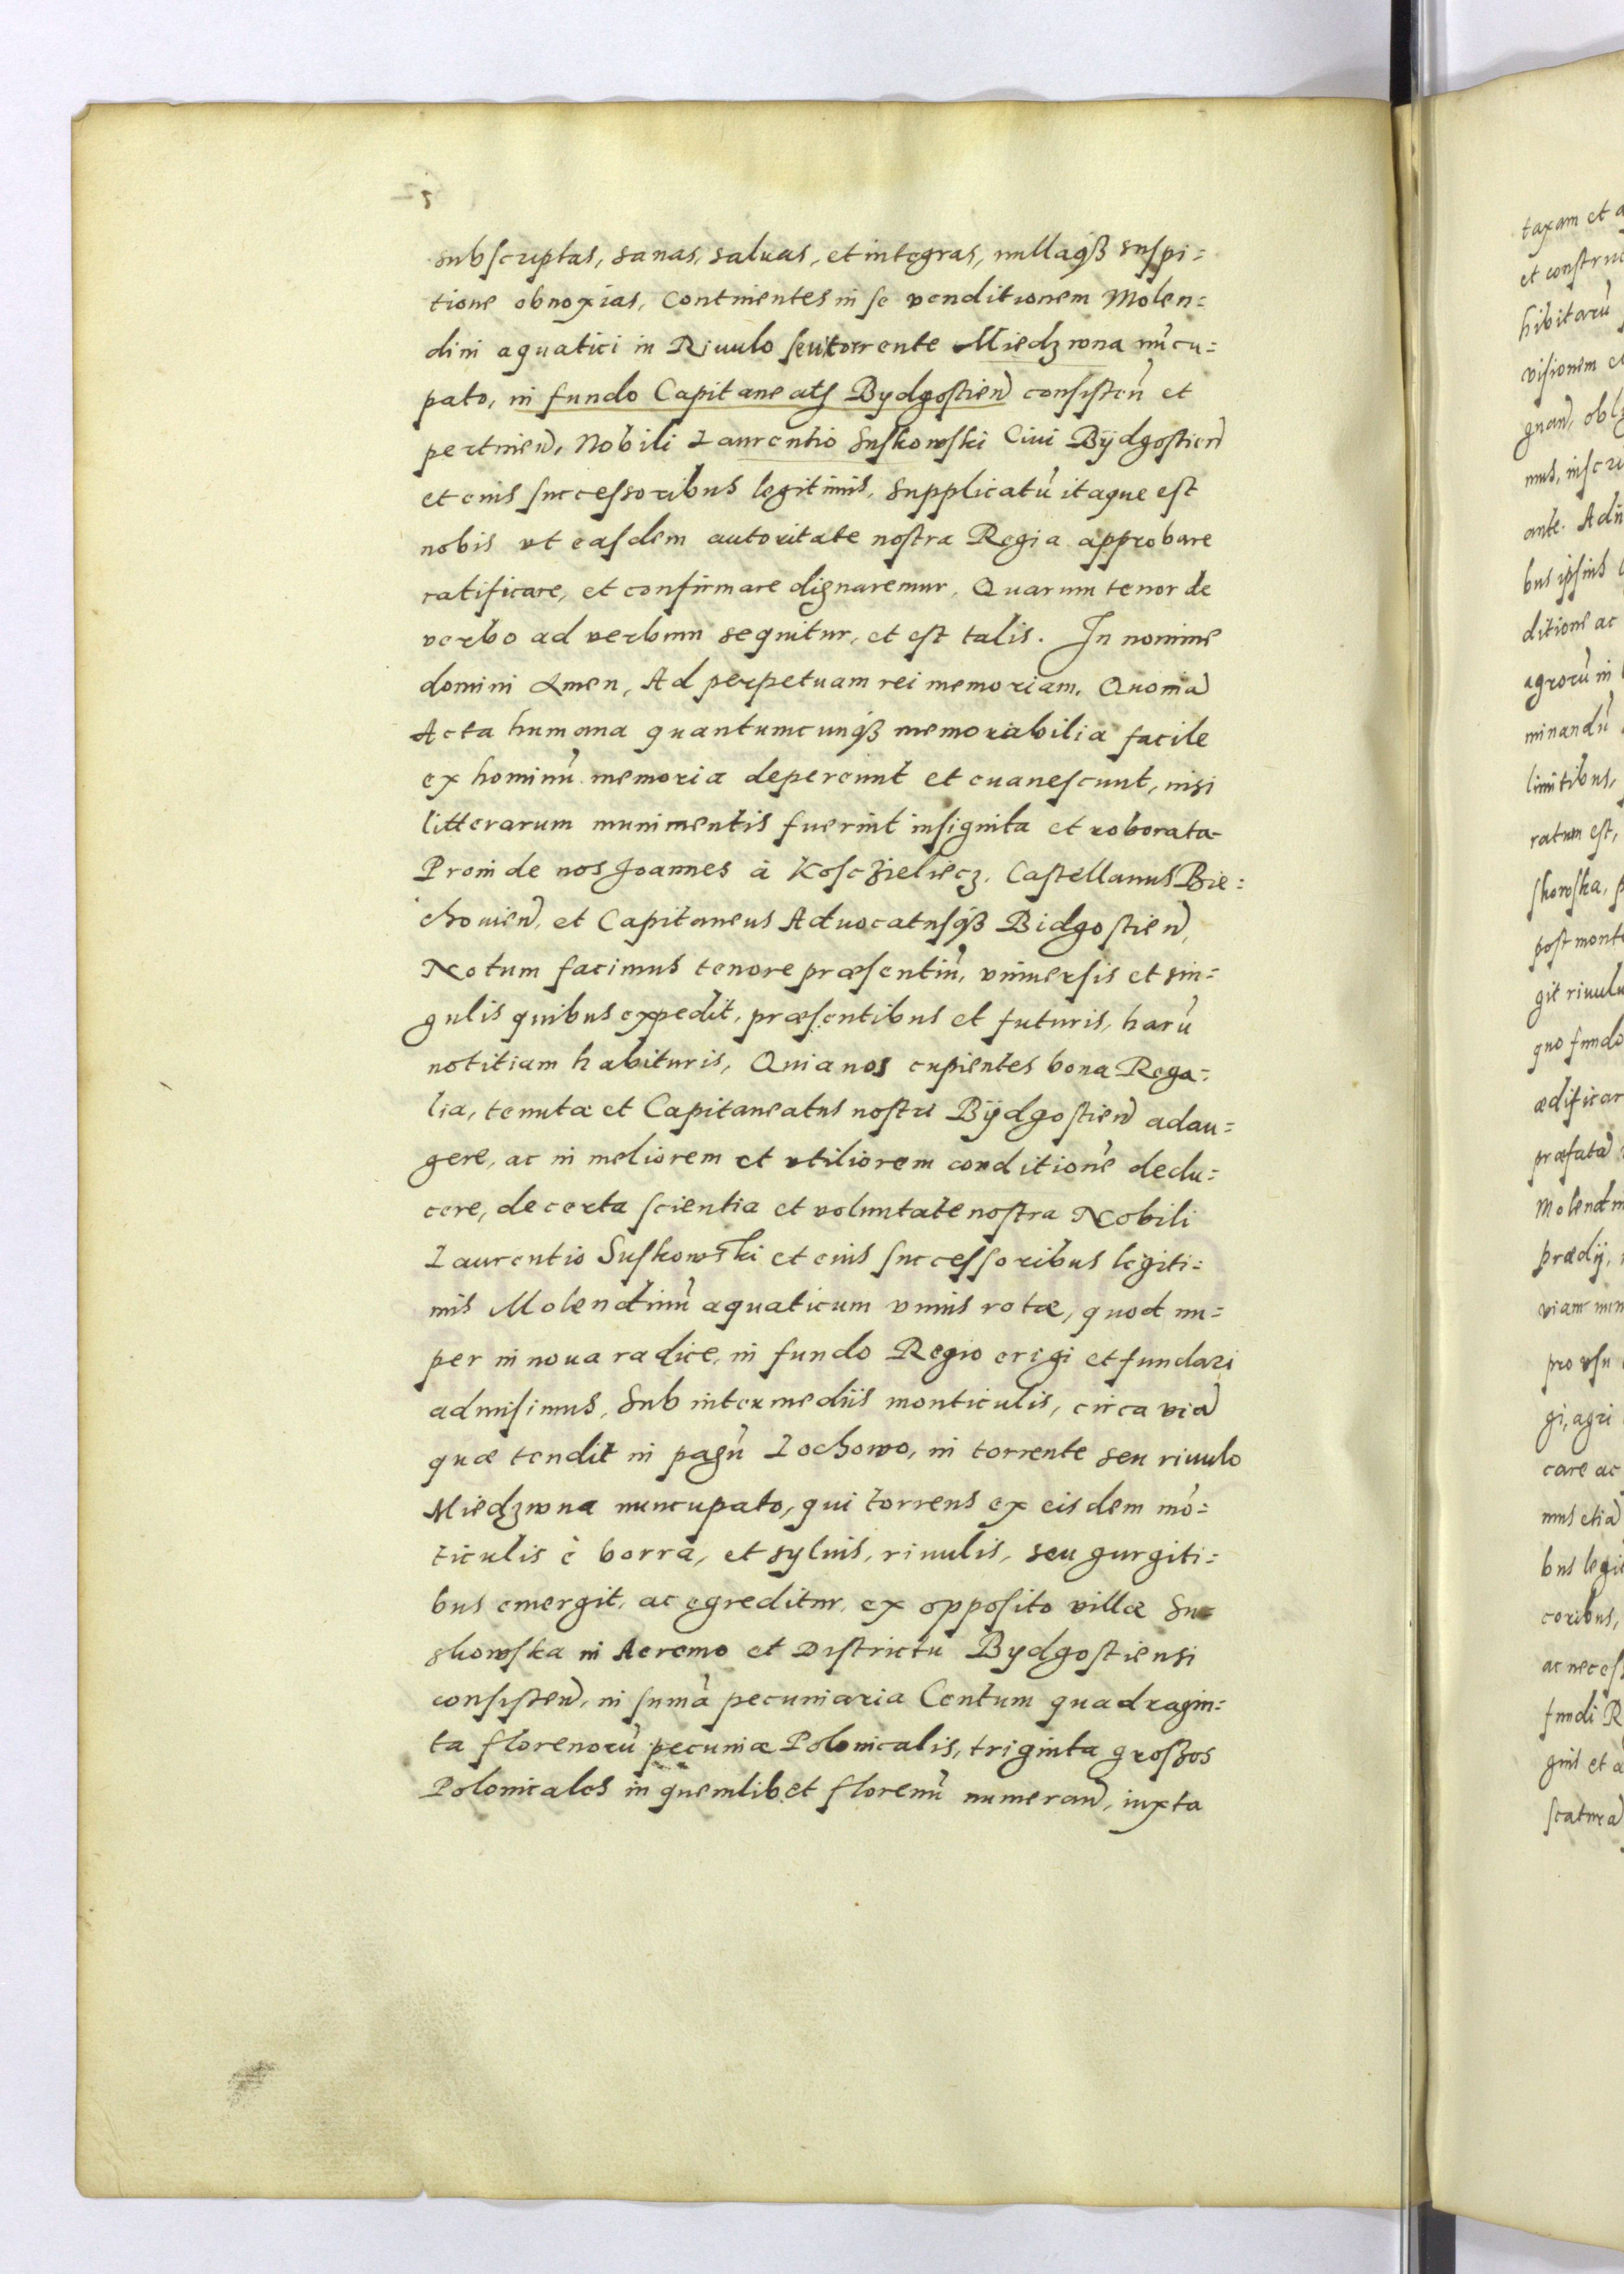 subscriptas, sanas, saluas, et integras, nullaqß suspi=
tione obnoxias, Continentes in se venditionem Molen=
dini aquatici in Riuulo seu torrente Miedzwna nũcu=
pato, in fundo Capitaneatg Bydgostieñ consisteñ et
pertineñ, Nobili Laurentio Suskowski Ciui Bÿdgostieñ
et eius successoribus legitimis, Supplicatũ itaque est
nobis vt easdem autoritate nostra Regia approbare
ratificare, et confirmare dignaremur, Quarum tenor de
verbo ad verbum sequitur, et est talis. In nomine
domini Amen, Ad perpetuam rei memoriam, Quoniã
Acta humana quantumcunqß memorabilia facile
ex hominũ memoria depereunt et euanescunt, nisi
litterarum munimentis fuerint insignita et roborata
Proinde nos Joannes à Kosczieliecz, Castellanus Bie=
chouieñ, et Capitaneus Aduocatusqß Bidgostieñ,
Notum facimus tenore præsentiũ, vniuersis et sin=
gulis quibus expedit, præsentibus et futuris, harũ
notitiam habituris, Quia nos cupientes bona Rega=
lia, tenutæ et Capitaneatus nostri Bÿdgostieñ adau=
gere, ac in meliorem et vtiliorem conditionẽ dedu=
cere, de certa scientia et voluntate nostra Nobili
Laurentio Suskowski et eius successoribus legiti=
mis Molendinũ aquaticum vnius rotæ, quod nu=
per in noua radice, in fundo Regio erigi et fundari
admisimus, Sub intermediis monticulis, circa viã
quæ tendit in pagũ Lochowo, in torrente seu riuulo
Miedzwna nuncupato, qui torrens ex eisdem mõ=
ticulis è borra, et syluis, riuulis, seu gurgiti=
bus emergit, ac egreditur, ex opposito villæ Su=
skowska in Aeremo et Districtu Bydgostiensi
consisteñ, in sumã pecuniaria Centum quadragin=
ta florenorũ pecuniæ Polonicalis, triginta großos
Polonicales in quemlibet florenũ numerañ, iuxta
taxam et
et constru
hibitarũ
visionem
guañ, obl
mus, inscri
ante. Ad
bus ipsius
ditione ac
agrorũ in
minandũ
limitibus,
ratum est,
skowska,
post mont
git riuulu
quo fundo
ædificar
præfatã
Molendin
prædij,
viam
pro vsu
gi, agri
care ac
mus etiã
bus legi
coribus,
ac necess
fundi R
gnis et
scaturã